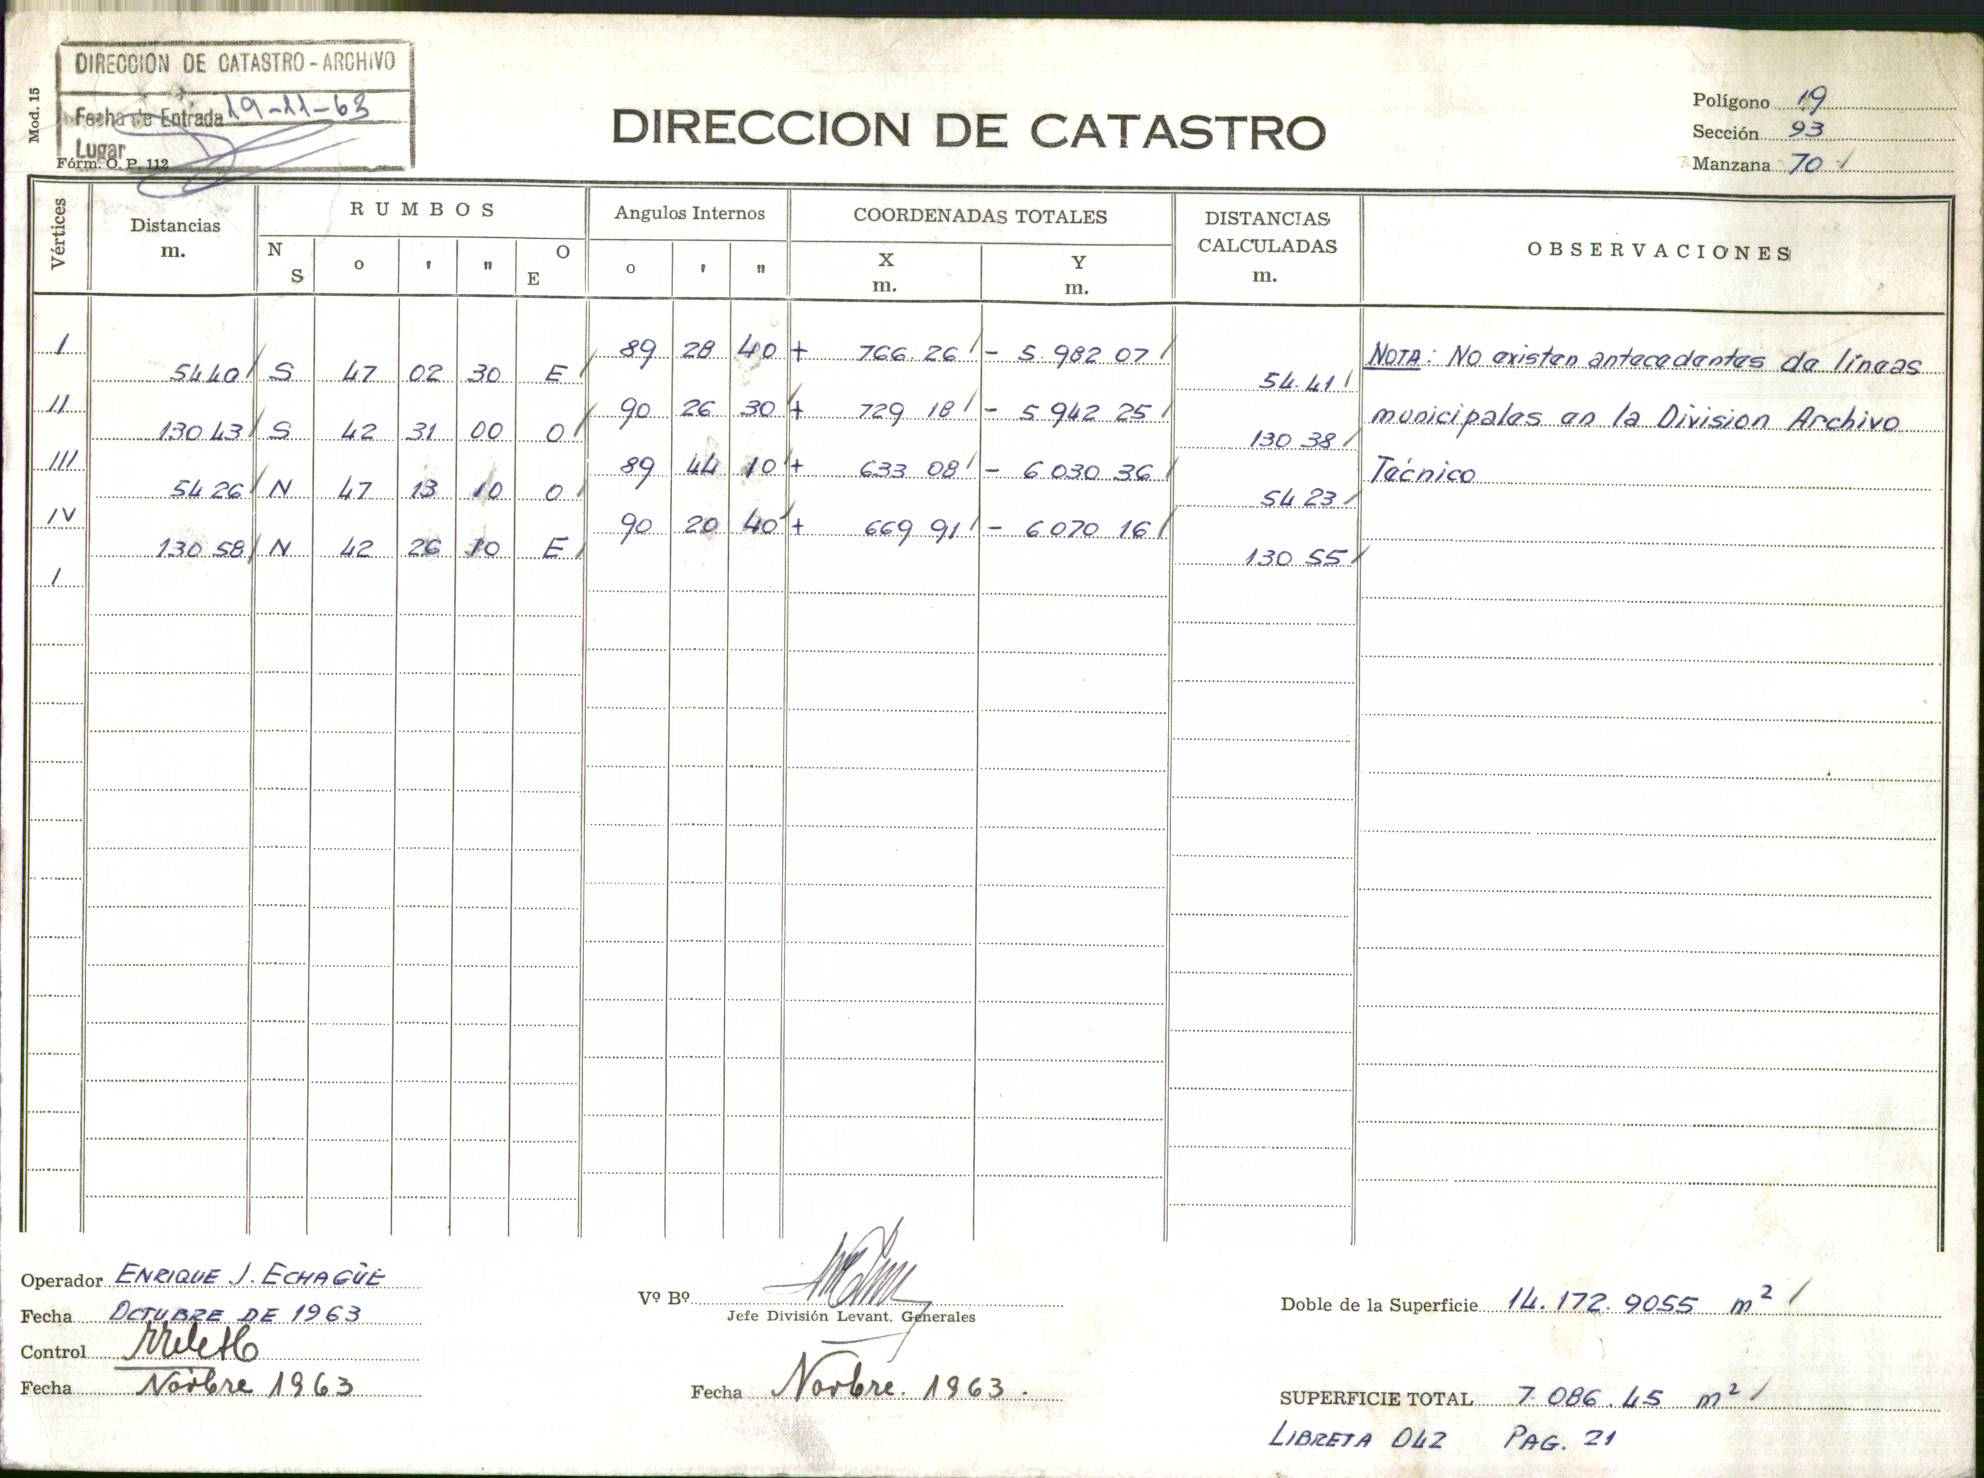 DIRECCION DE CATASTRO - ARCHIVO
Fecha de Entrada 19-11-63
Lugar
Mod. 15
Fórm. O. P. 112
DIRECCION DE CATASTRO
Polígono 19
Sección 93
Manzana 70
Vértices
Distancias m.
RUMBOS
N S o ' " O E
Angulos Internos
o ' "
COORDENADAS TOTALES
X m. Y m.
DISTANCIAS CALCULADAS m.
OBSERVACIONES
I 89 28 40 + 766 26 - 5 982 07
54 40 S 47 02 30 E 54.41
II 90 26 30 + 729 18 - 5 942 25
130 43 S 42 31 00 O 130 38
III 89 44 10 + 633 08 - 6 030 36
54 26 N 47 13 10 O 54 23
IV 90 20 40 + 669 91 - 6 070 16
130 58 N 42 26 10 E 130 55
I
NOTA: No existen antecedentes de líneas
municipales en la Division Archivo
Técnico
Operador ENRIQUE J. ECHAGÜE
Fecha OCTUBRE DE 1963
Control
Fecha Novbre 1963
Vº Bº
Jefe División Levant. Generales
Fecha Novbre. 1963.
Doble de la Superficie 14.172.9055 m²
SUPERFICIE TOTAL 7.086.45 m²
LIBRETA 042 PAG. 21